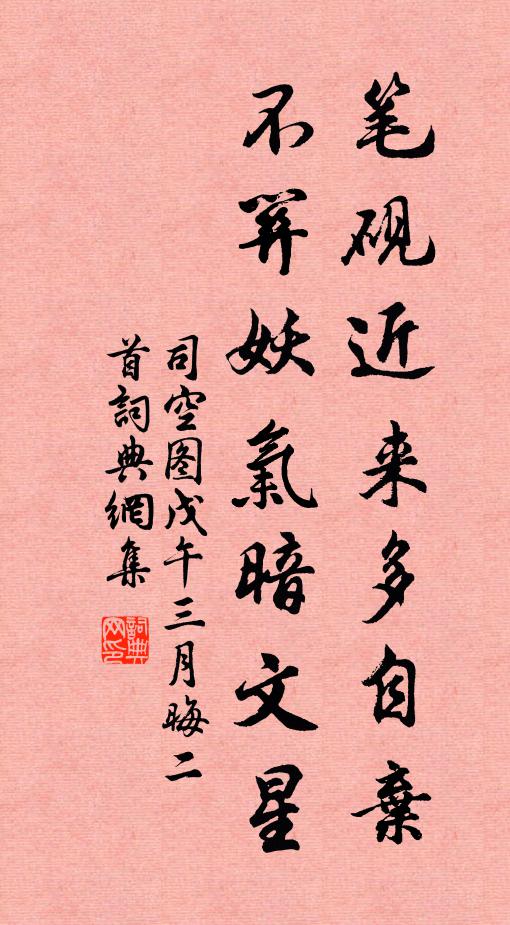 笔硯近来多自棄
不関妖氣暗文星
司空图戊午三月晦二
首詞典網集
詞典
网印